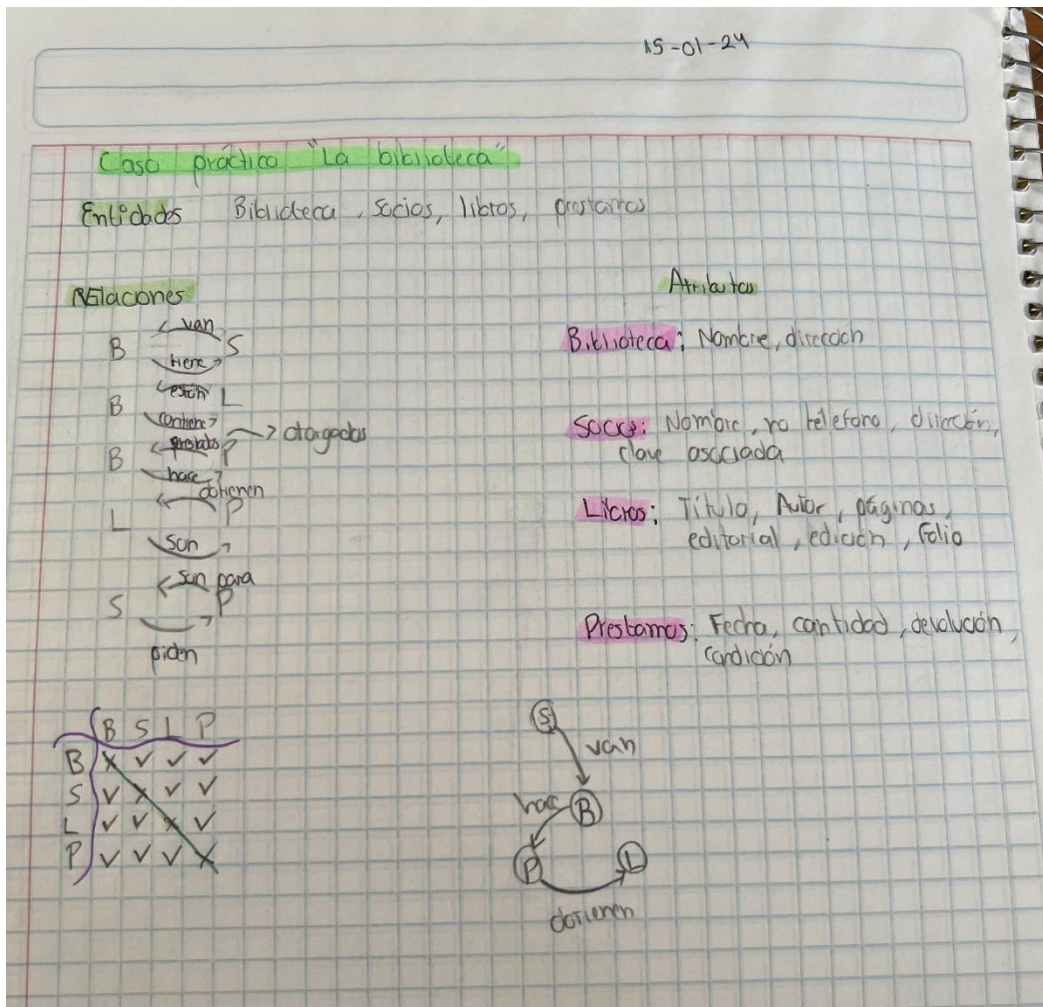 15-01-24
Caso práctico "La biblioteca"
Entidades Biblioteca, socios, libros, prestamos
Relaciones
van
B S
tiene
están
B L
contiene
prestados → otorgados
B P
hace
obtienen
L P
son
son para
S P
piden
Atributos
Biblioteca: Nombre, dirección
Socios: Nombre, no telefono, dirección,
clave asociada
Libros: Título, Autor, páginas,
editorial, edición, Folio
Prestamos: Fecha, cantidad, devolución,
condición
B S L P
B x ✓ ✓ ✓
S ✓ x ✓ ✓
L ✓ ✓ x ✓
P ✓ ✓ ✓ x
S
van
hace B
P L
obtienen